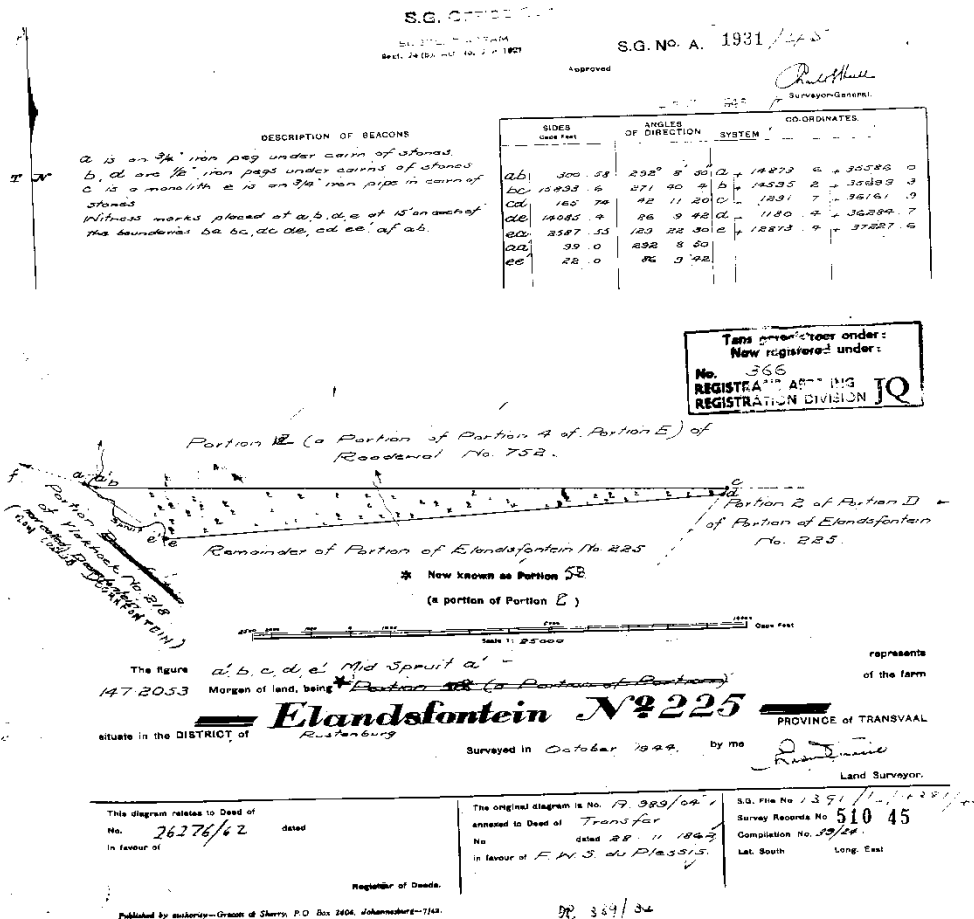 S.G. OFFICE
S.G. No. A. 1931/45
Approved
Surveyor-General.
DESCRIPTION OF BEACONS
a is an 3/4" iron peg under cairn of stones.
b, d are 1/2" iron pegs under cairns of stones
c is a monolith e is an 3/4" iron pipe in cairn of
stones
Witness marks placed at a, b, d, e at 15' on each of
the boundaries ba bc, dc de, ed ee' af ab.
T N
SIDES Cape Feet ANGLES OF DIRECTION SYSTEM CO-ORDINATES
ab 300.58 292° 8' 50" a + 14873 6 + 35586 0
bc 15893.6 271 40 4 b + 14595 2 + 35699 3
cd 165 74 42 11 20 c - 1291 7 + 36161 9
de 14085.4 86 9 42 d - 1180.4 + 36284.7
ea 2587.55 129 22 30 e + 12873.4 + 37227.6
aa' 99.0 292 8 50
ee' 22.0 86 9 42
Tans geregistreer onder:
Now registered under:
No. 366
REGISTRASIE AFDELING
REGISTRATION DIVISION JQ
Portion (a Portion of Portion 4 of Portion E) of
Roodewal No. 752.
f a a' b c
d
e' e
Spruit
Portion
of Vlakhoek No. 218
Portion 2 of Portion D
of Portion of Elandsfontein
No. 225.
Remainder of Portion of Elandsfontein No. 225
* Now known as Portion 58
(a portion of Portion E)
Cape Feet
Scale 1: 25000
The figure a', b, c, d, e' Mid Spruit a' - represents
147.2053 Morgen of land, being * Portion (a Portion of Portion) of the farm
Elandsfontein No 225
situate in the DISTRICT of Rustenburg PROVINCE of TRANSVAAL
Surveyed in October 1944. by me
Land Surveyor.
This diagram relates to Deed of
No. 26276/62 dated
in favour of
Registrar of Deeds.
The original diagram is No. A. 989/04
annexed to Deed of Transfer
No dated 28.11.1862
in favour of F.W.S. du Plessis.
S.G. File No 1391/
Survey Records No 510 45
Compilation No. 39/24.
Lat. South Long. East
Published by authority—Grocott & Sherry, P.O. Box 2406, Johannesburg—7/43.